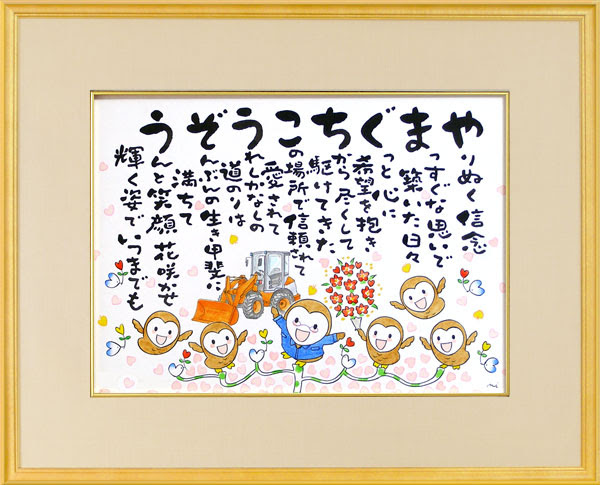 やりぬく信念
まっすぐな思いで
築いた日々
ぐっと心に
希望を抱き
ちから尽くして
駆けてきた
この場所で信頼されて
愛されて
うれしかなしの
道のりは
ぞんぶんの生き甲斐に
満ちて
うんと笑顔 花咲かせ
輝く姿で いつまでも